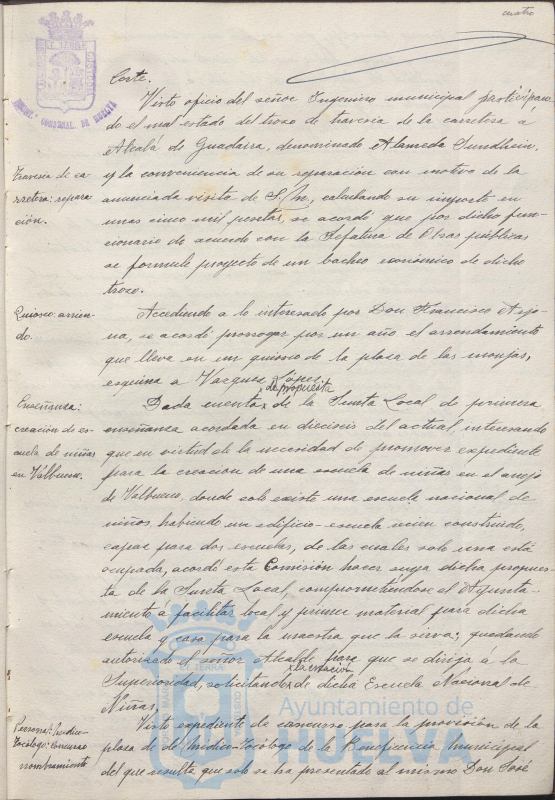 cuatro
Corte.
Visto oficio del señor Ingeniero municipal participan-
do el mal estado del trozo de travesia de la carretera á
Alcalá de Guadaira, denominado Alameda Sundheim,
Travesia de ca-
rretera: repara-
ción.
y la conveniencia de su reparación con motivo de la
anunciada visita de S/M, calculando su importe en
unas cinco mil pesetas, se acordó que por dicho fun-
cionario de acuerdo con la Jefatura de Obras públicas
se formule proyecto de un bacheo económico de dicho
trozo.
Quiosco: arrien-
do.
Accediendo a lo interesado por Don Francisco Arjo-
na, se acordó prorrogar por un año el arrendamiento
que lleva en un quiosco de la plaza de las monjas,
esquina a Vazquez López.
de propuesta
Enseñanza:
creación de es-
cuela de niñas
en Valbueno.
Dada cuenta, de la Junta Local de primera
enseñanza acordada en dieciseis del actual, interesando
que en virtud de la necesidad de promover expediente
para la creación de una escuela de niñas en el anejo
de Valbueno, donde solo existe una escuela nacional de
niños, habiendo un edificio-escuela recien construido,
capaz para dos escuelas, de las cuales solo una está
ocupada, acordó esta Comisión hacer suya dicha propues-
ta de la Junta Local, comprometiéndose el Ayunta-
miento á facilitar local y primer material para dicha
escuela y casa para la maestra que la sirva; quedando
autorizado el señor Alcalde para que se dirija á la
la creación
Superioridad, solicitando de dicha Escuela Nacional de
Niñas,
Personal: Médico-
Tocólogo: concurso
nombramiento
Visto expediente de concurso para la provisión de la
plaza de de Médico-Tocólogo de la Beneficencia Municipal
del que resulta que solo se ha presentado al mismo Don José
Ayuntamiento de
HUELVA